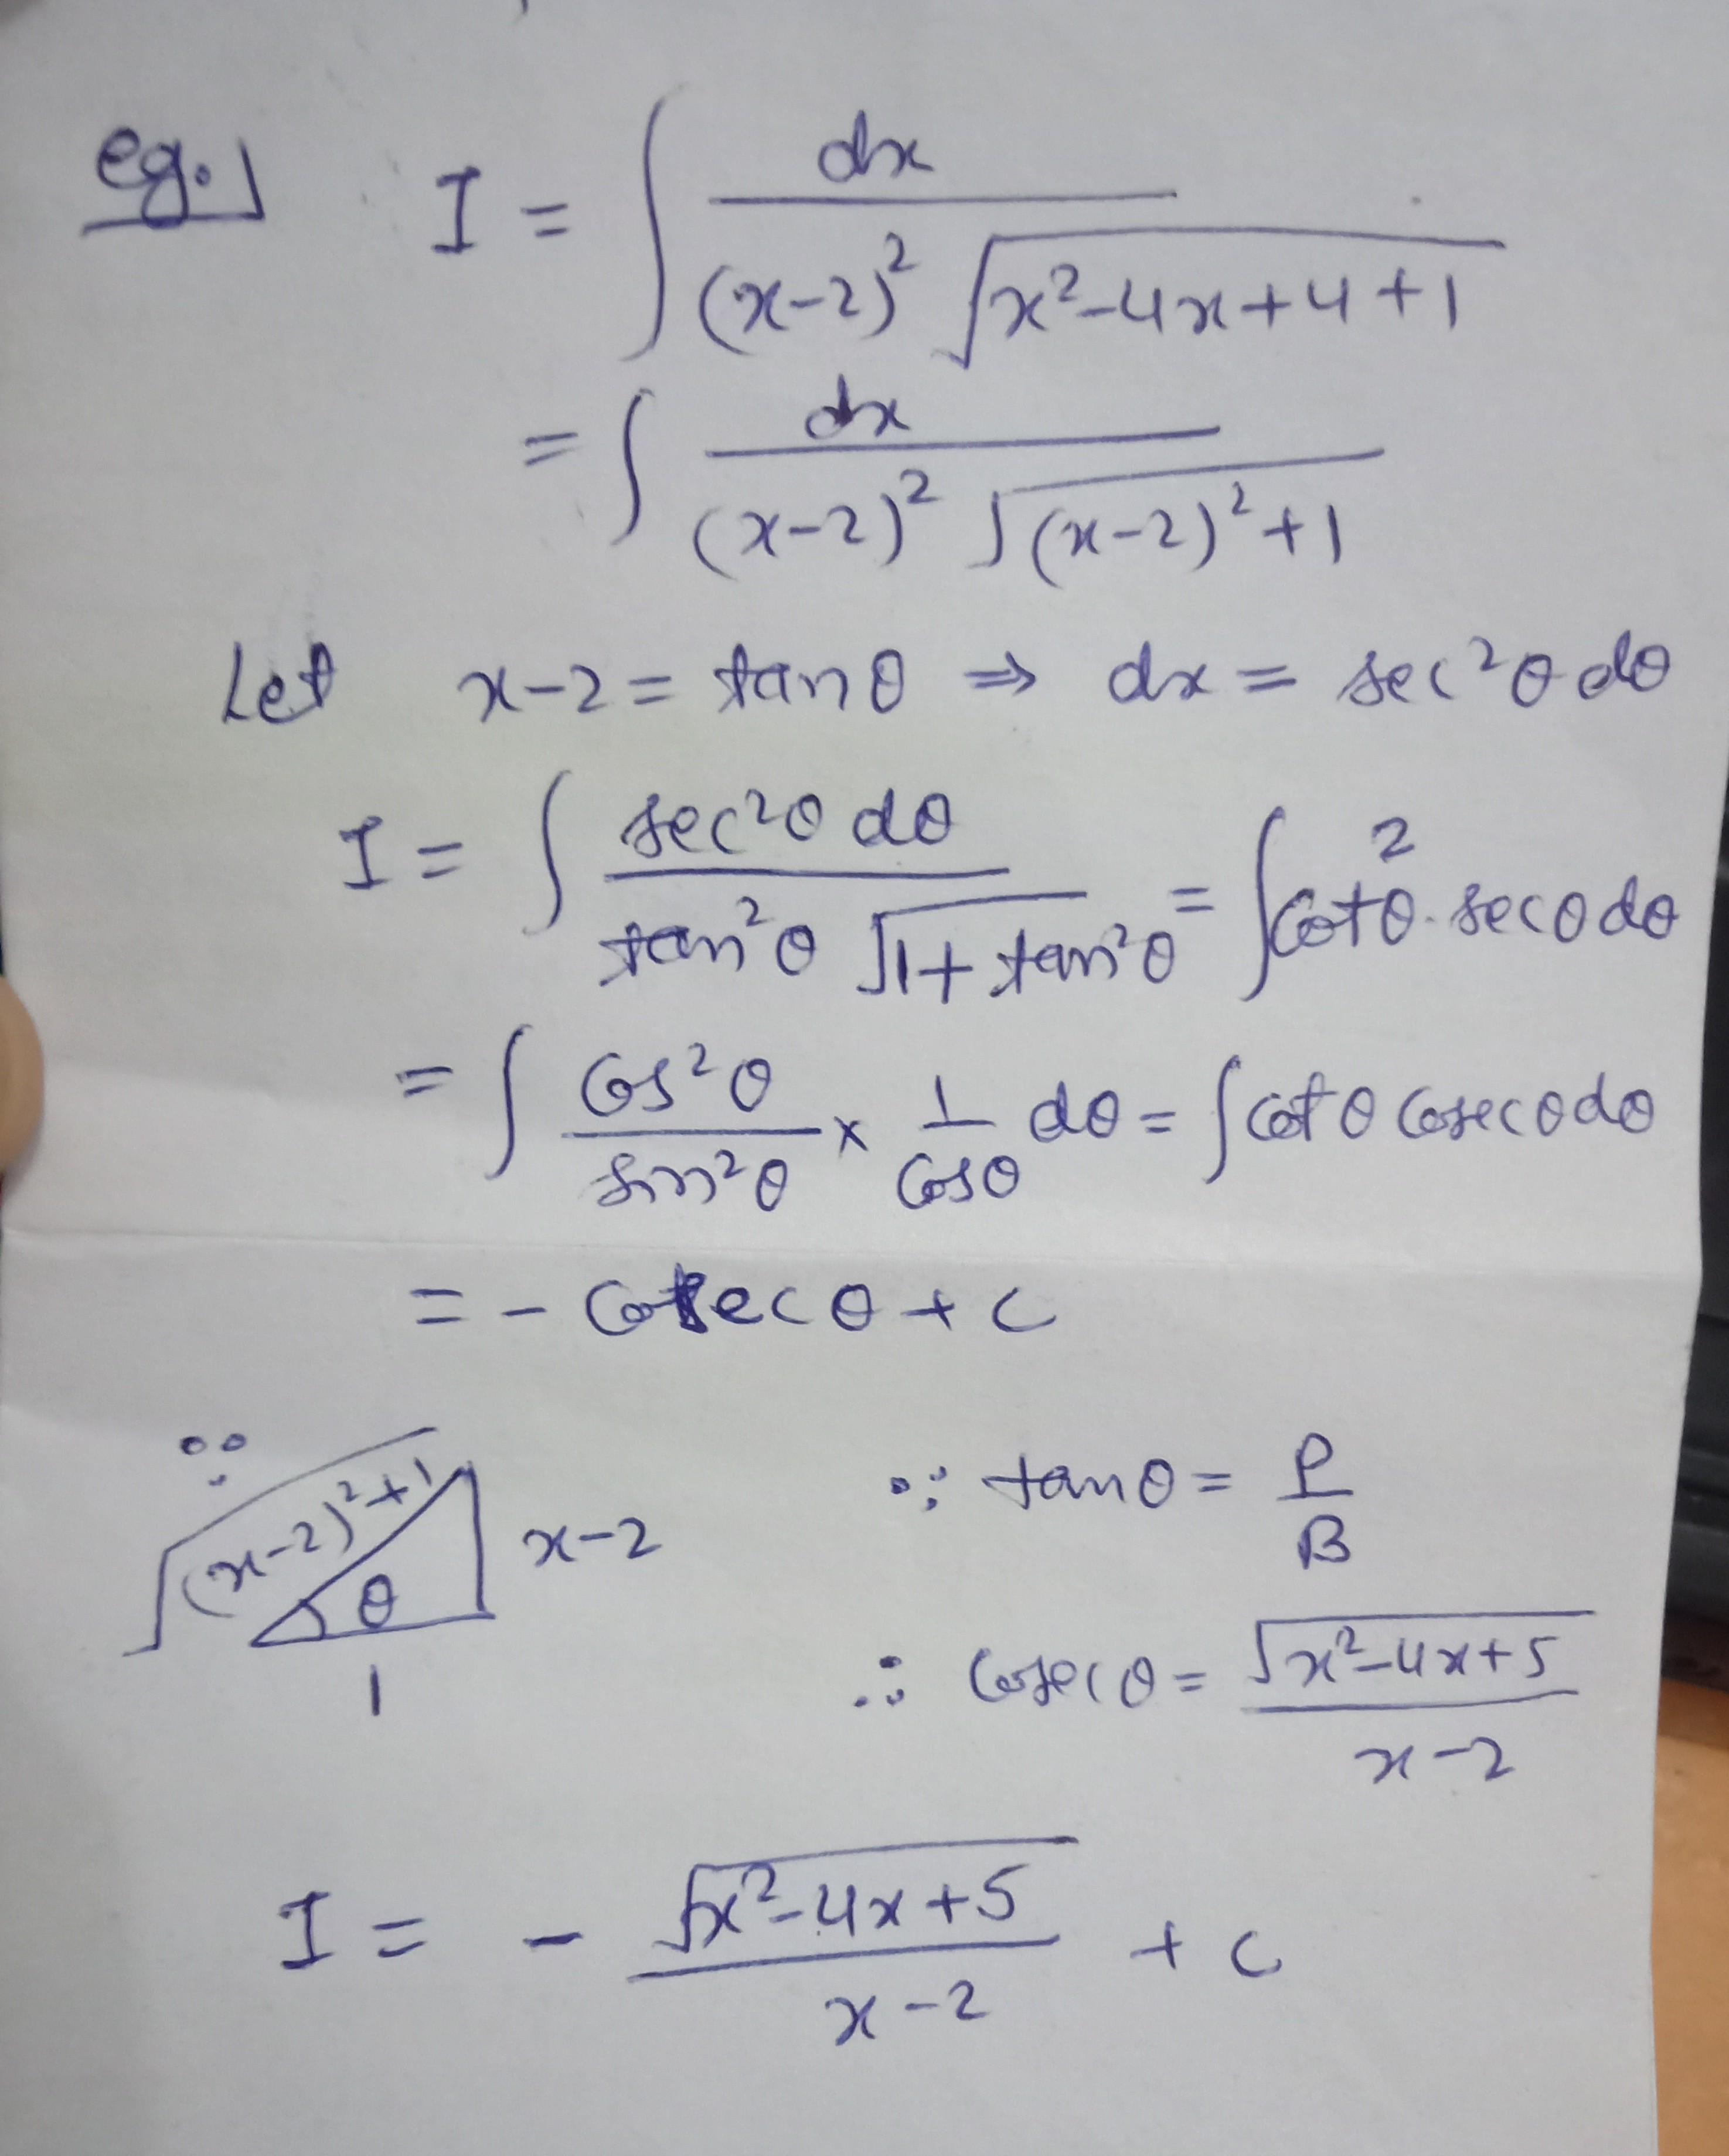 eg.) I = ∫ dx / ((x-2)² √(x²-4x+4+1))
= ∫ dx / ((x-2)² √((x-2)²+1))
Let x-2 = tanθ ⇒ dx = sec²θ dθ
I = ∫ sec²θ dθ / (tan²θ √(1+tan²θ)) = ∫ cot²θ. secθ dθ
= ∫ Cos²θ / sin²θ × 1/Cosθ dθ = ∫ cotθ Cosecθ dθ
= - Cosecθ + C
∵ √((x-2)²+1) θ x-2 1
∵ tanθ = P/B
∴ Cosecθ = √(x²-4x+5) / (x-2)
I = - √(x²-4x+5) / (x-2) + C